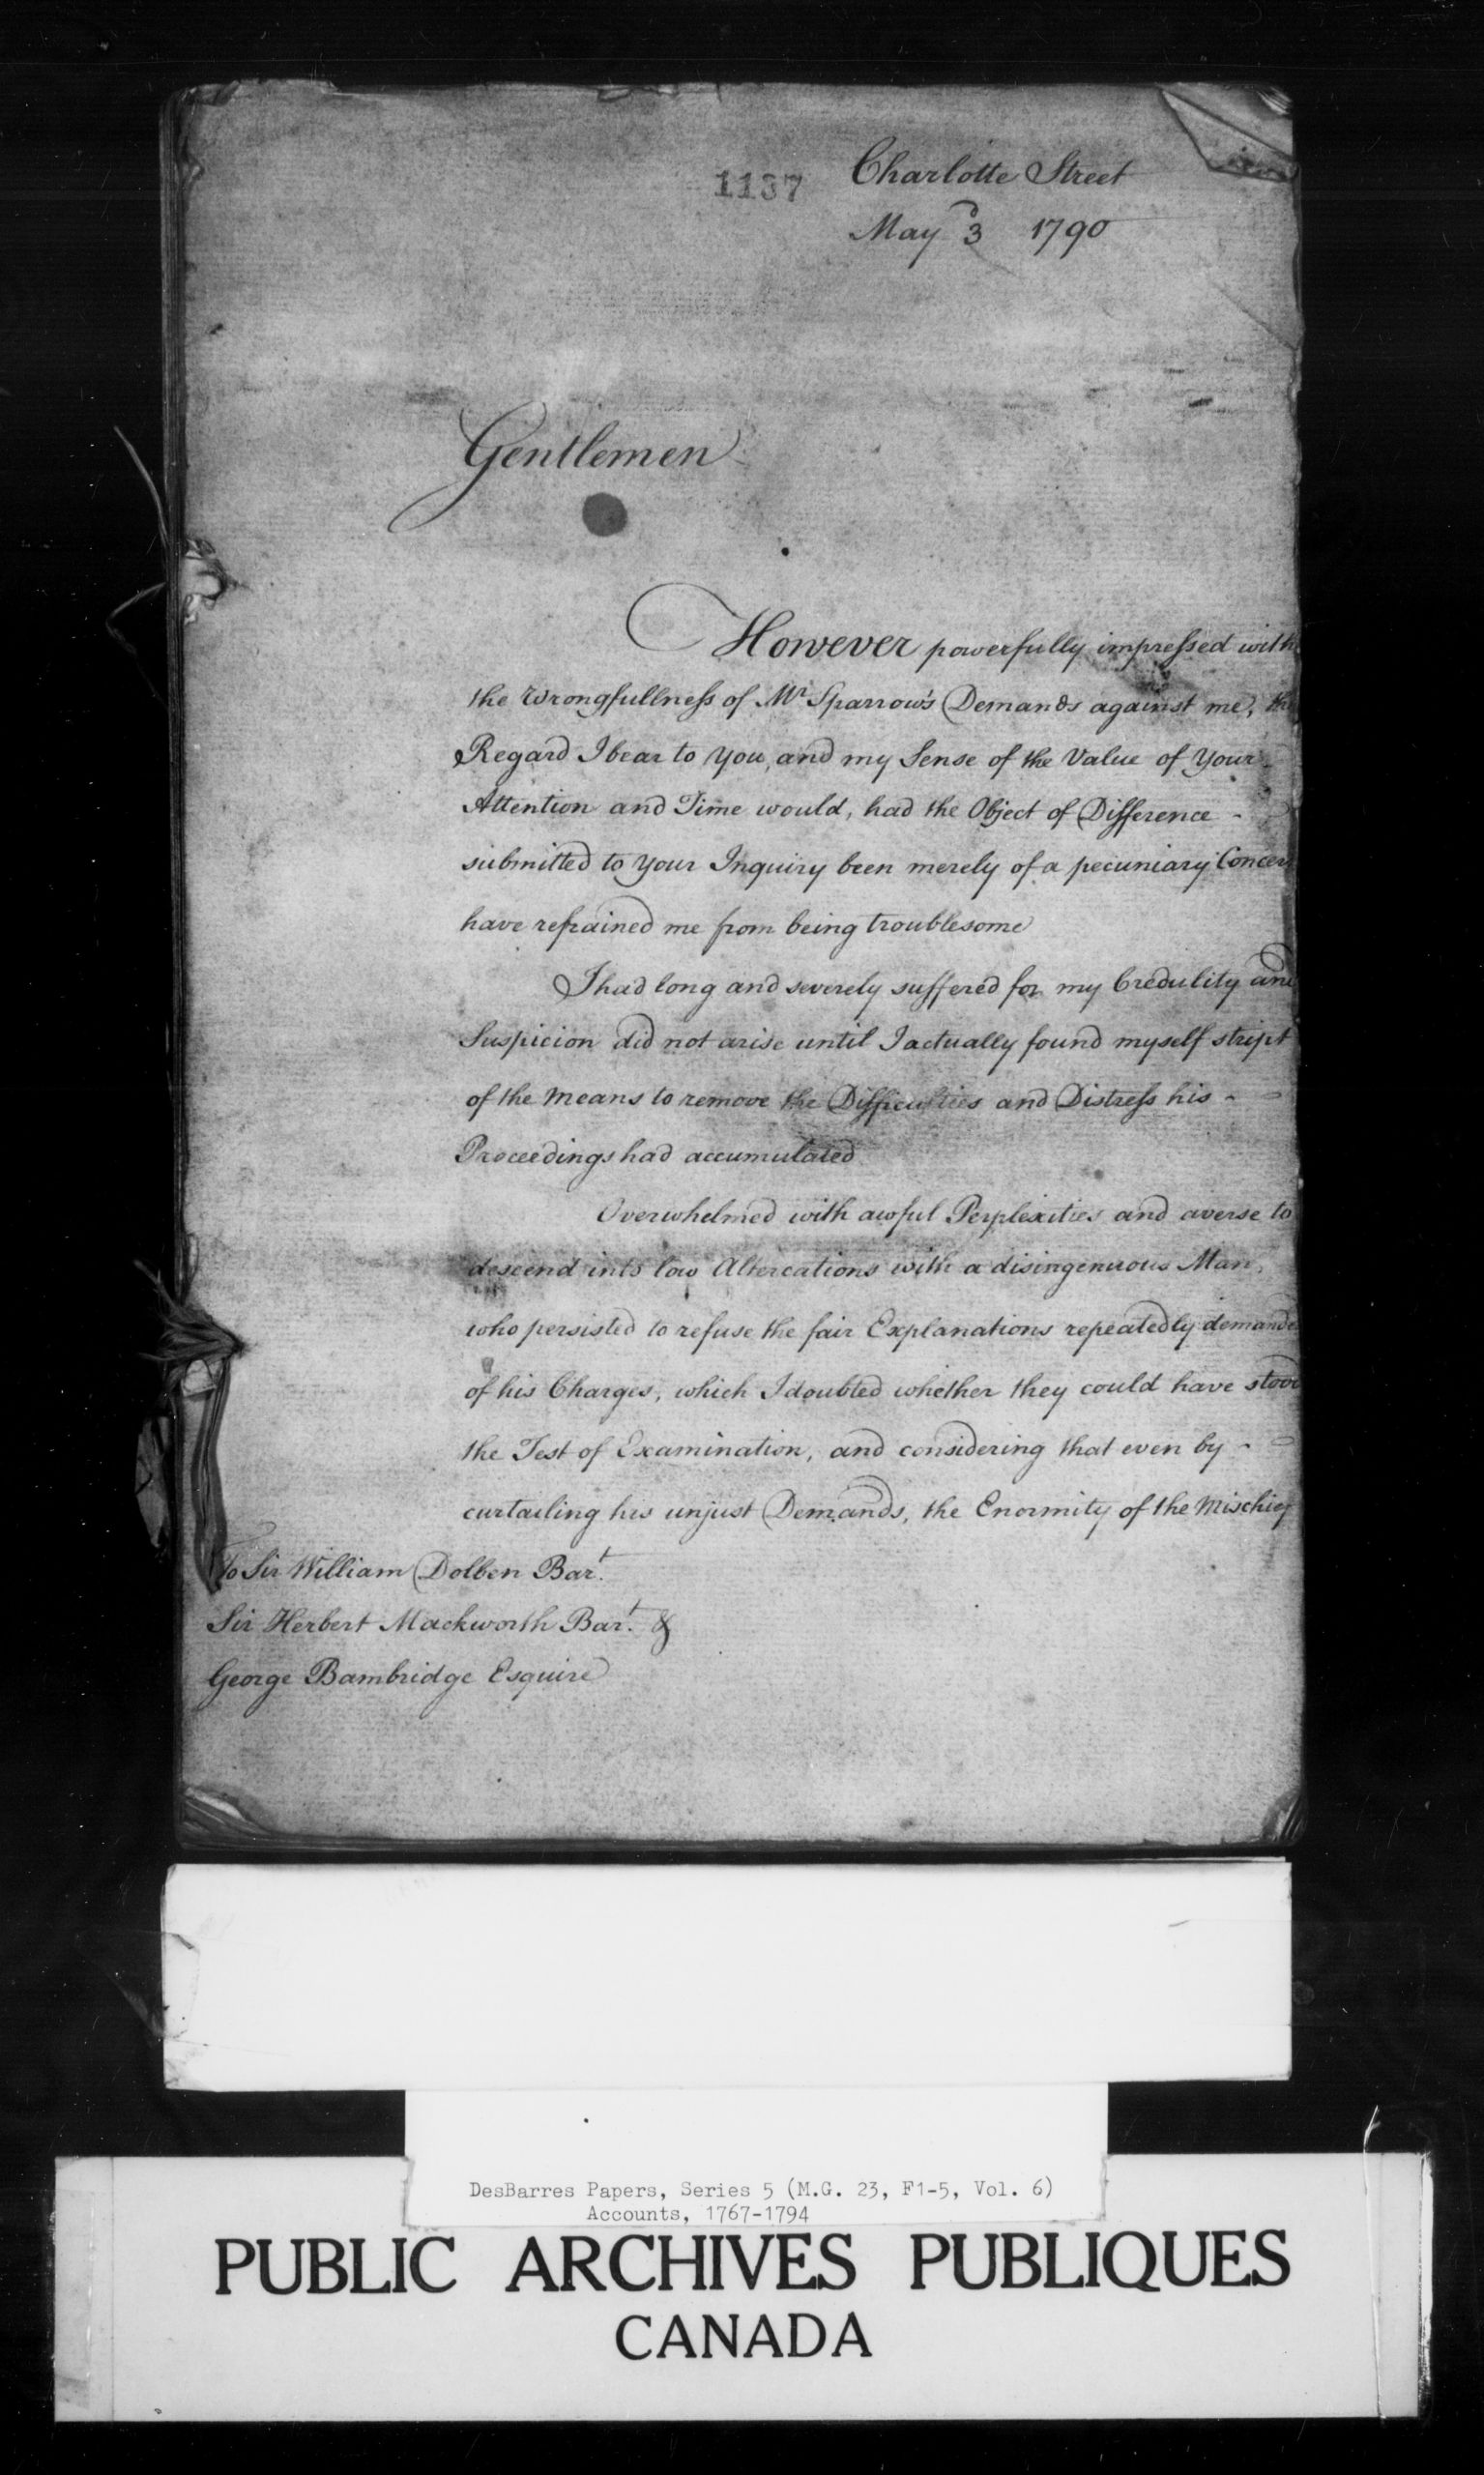 1137
Charlotte Street
May 3 1790
Gentlemen
However powerfully impressed with
the Wrongfullness of Mr Sparrow's Demands against me, the
Regard I bear to you, and my Sense of the Value of Your
Attention and Time would, had the Object of Difference -
submitted to your Inquiry been merely of a pecuniary Concern
have refrained me from being troublesome
I had long and severely suffered for my Credulity and
Suspicion did not arise until I actually found myself stript
of the Means to remove the Difficulties and Distress his -
Proceedings had accumulated
Overwhelmed with awful Perplexities and averse to
descend into low Altercations with a disingenuous Man,
who persisted to refuse the fair Explanations repeatedly demanded
of his Charges, which I doubted whether they could have stood
the Test of Examination, and considering that even by -
curtailing his unjust Demands, the Enormity of the Mischief
To Sir William Dolben Bart.
Sir Herbert Mackworth Bart. &
George Bambridge Esquire
DesBarres Papers, Series 5 (M.G. 23, F1-5, Vol. 6)
Accounts, 1767-1794
PUBLIC ARCHIVES PUBLIQUES
CANADA